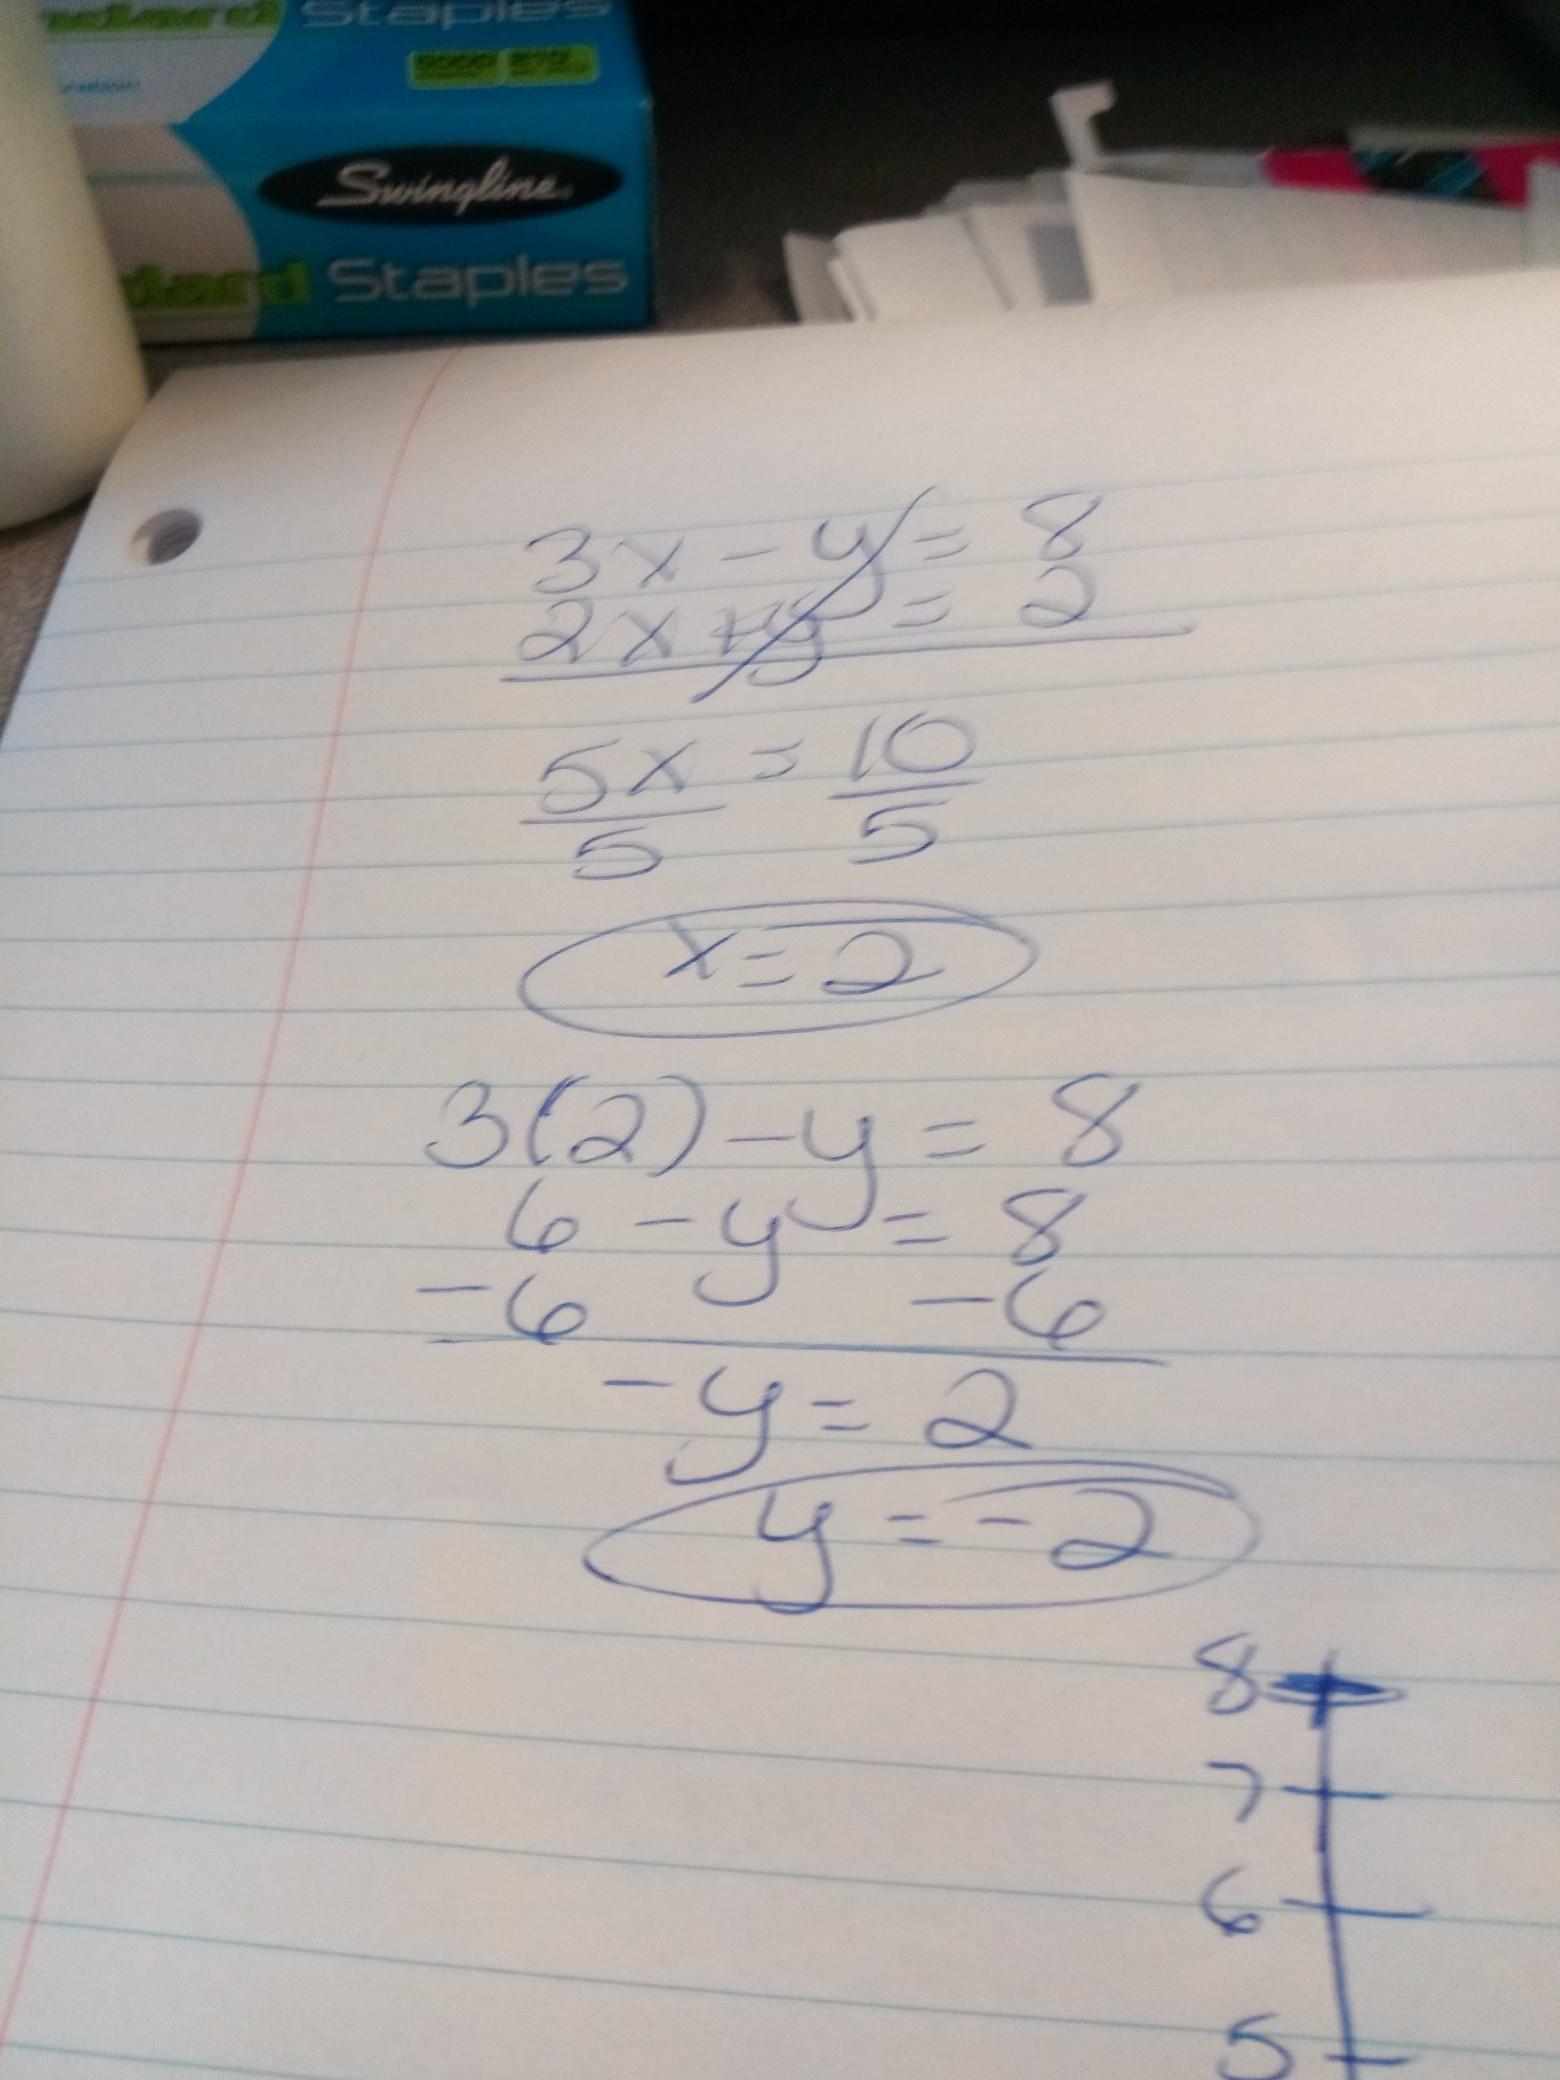 Staples
Swingline
Staples
3x - y = 8
2x + y = 2
5x = 10
5 5
x = 2
3(2) - y = 8
6 - y = 8
-6 -6
-y = 2
y = -2
8
7
6
5